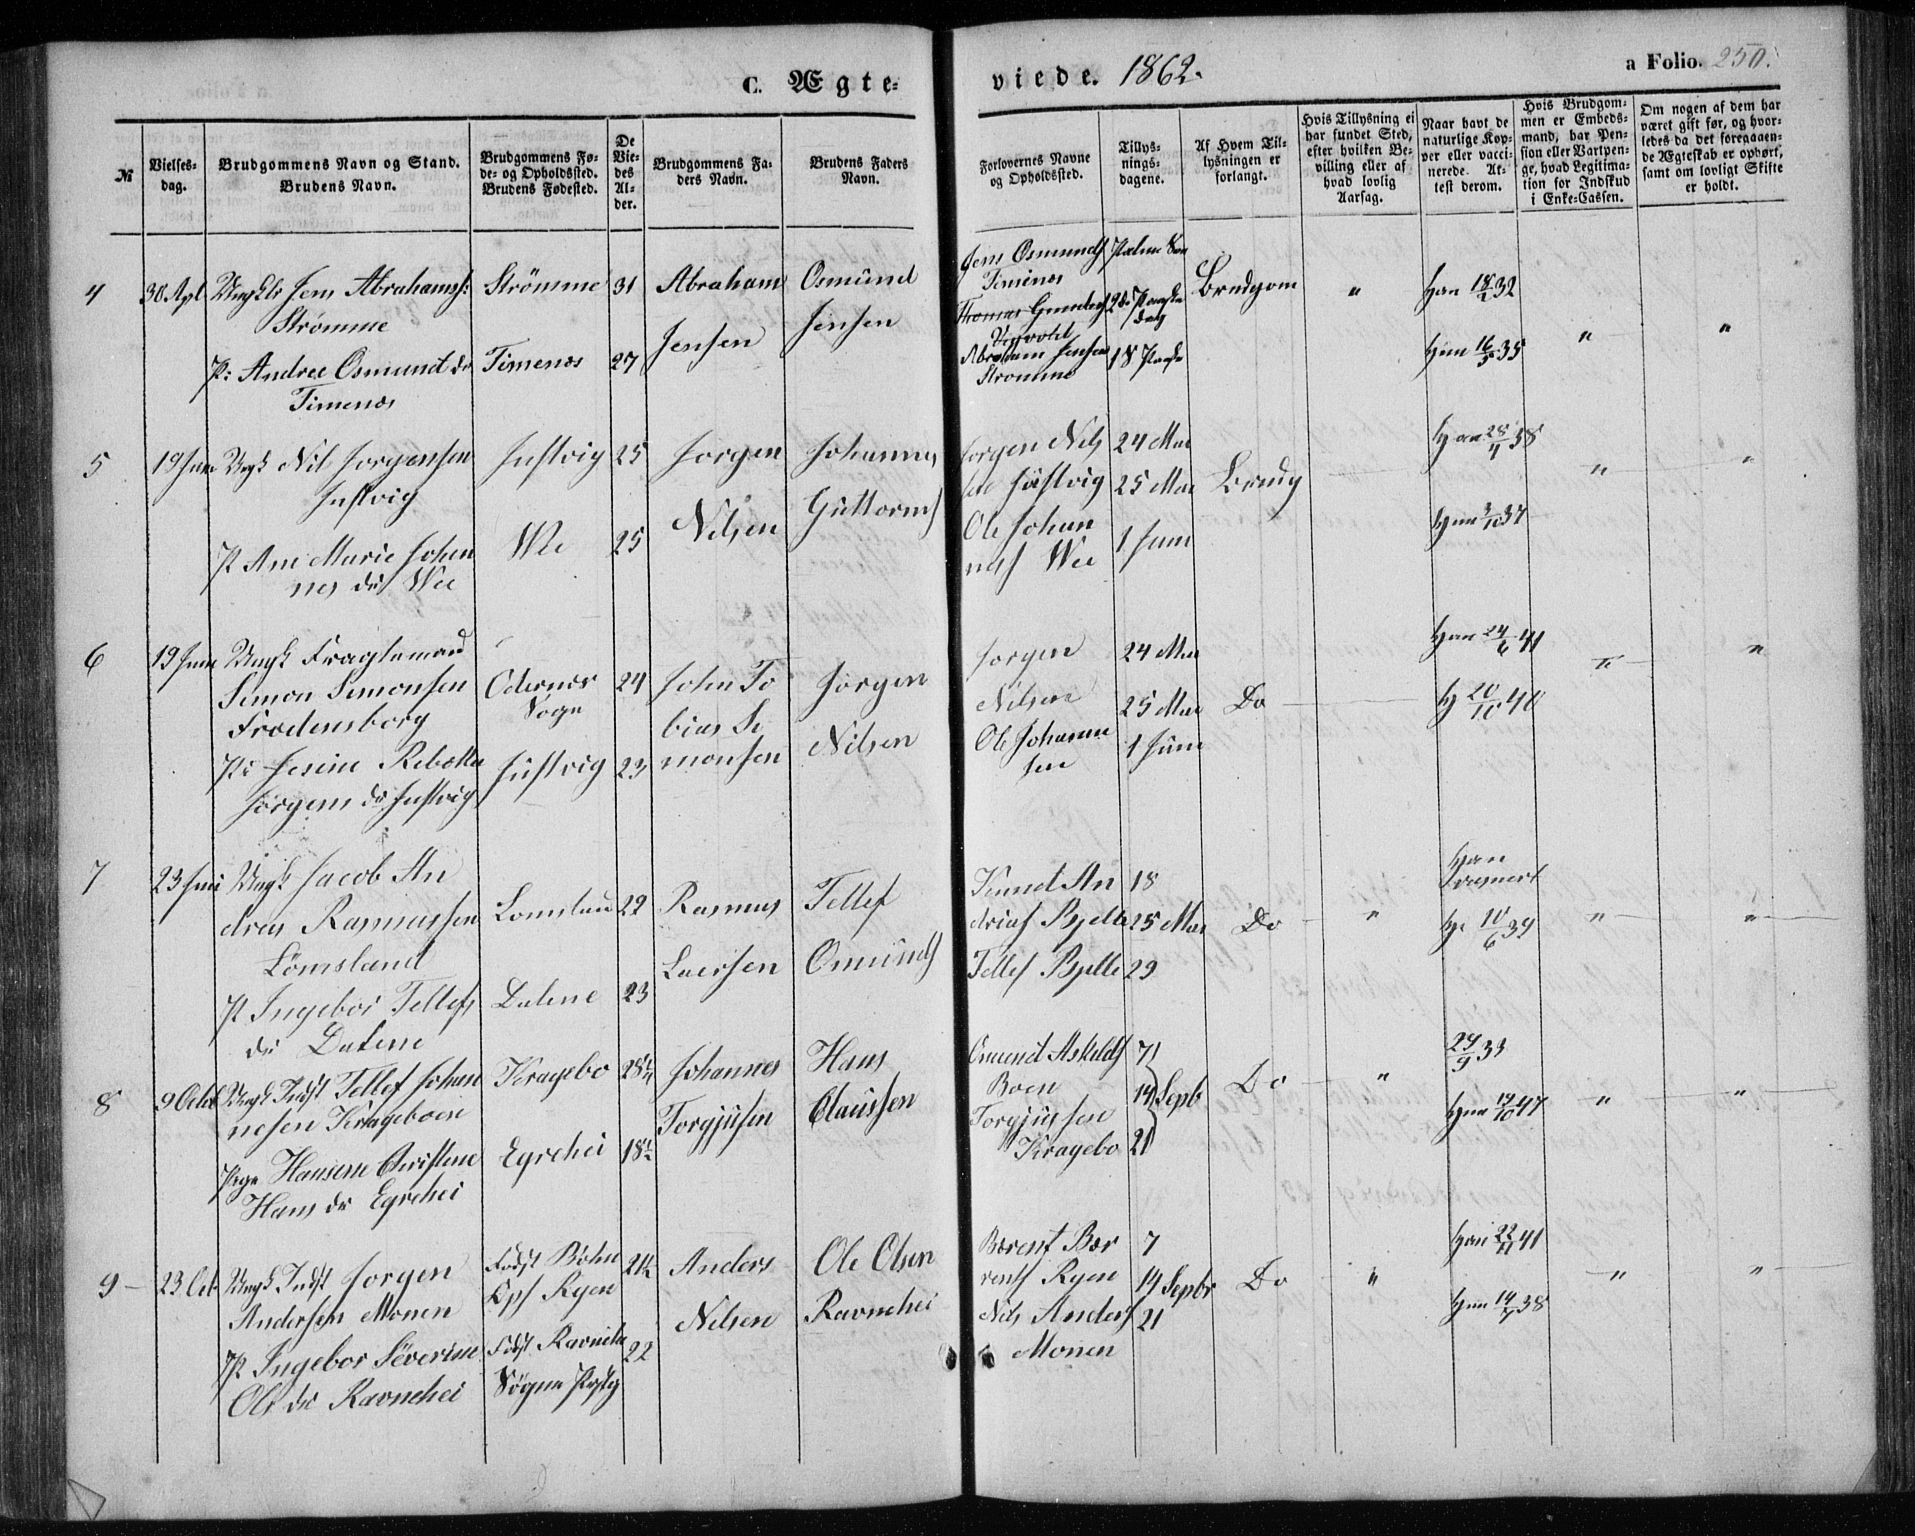 C. Ægte-
viede. 1862.
a Folio. 250.
№
Vielses-
dag.
Brudgommens Navn og Stand.
Brudens Navn.
Brudgommens Fø-
de- og Opholdssted.
Brudens Fødested.
De
Vie-
des
Al-
der.
Brudgommens Fa-
ders Navn.
Brudens Faders
Navn.
Forlovernes Navne
og Opholdssted.
Tillys-
nings-
dagene.
Af Hvem Til-
lysningen er
forlangt.
Hvis Tillysning ei
har fundet Sted,
efter hvilken Be-
villing eller af
hvad lovlig
Aarsag.
Naar havt de
naturlige Kop-
per eller vacci-
nerede. At-
test derom.
Hvis Brudgom-
men er Embeds-
mand, har Pen-
sion eller Vartpen-
ge, hvad Legitima-
tion for Indskud
i Enke-Cassen.
Om nogen af dem har
været gift før, og hvor-
ledes da det foregaaen-
de Ægteskab er ophørt,
samt om lovligt Skifte
er holdt.
4
30 Apl
Ungkl Jens Abrahams:
Strømme
P: Andrea Osmund dr
Timenes
Strömme
Timenes
31
27
Abraham
Jensen
Osmund
Jensen
Jens Osmunds
Timenes
Thomas
Abraham Jensen
Strømme
Palme Søn
2de Paaske
dag
1 S Paaske
Brudgom
"
Han 18/2 32
Hun 16/5 35
"
"
5
19 Juni
Ungk Nil Jorgensen
Justvig
P Ane Marie Johan
nes dr Wee
Justvig
Wee
25
25
Jorgen
Nilsen
Johannes
Guttorms
Jorgen Nils
sen Justvig
Ole Johan
nes Wee
24 Mai
25 Mai
1 Juni
Brudg
Han 28/4 38
Hun 3/10 37
"
"
6
19 Juni
Ungk Fragtemand
Simon Simonsen
Frodensborg
P: Jesine Rebekka
Jorgens dr Justvig
Odernes
Sogn
Justvig
24
23
John To
bias Si
monsen
Jorgen
Nilsen
Jorgen
Nilsen
Ole Johanne
sen
24 Mai
25 Mai
1 Juni
Do
Han 24/6 41
H 20/10 40
"
7
23 Juni
Ungk Jacob An
dreas Rasmussen
Lømsland
P Ingebor Tellefs
dr Dalene
Lomsland
Dalene
22
23
Rasmus
Laersen
Tellef
Omunds
Knud An
dreas Bjelle
Tellef Bjelle
18
25 Mai
29
Do
"
Han
H. 10/6 39
"
"
8
9 Octb
Ungk Indst Tellef Johan
nesen Krageboen
Pige Hansine Christine
Hans dr Egrehei
Kragebo
Egrehei
28 1/4
18 1/2
Johannes
Torgjusen
Hans
Claussen
Omund Askilds
Boen
Torgjusen
Kragebo
7
14 Sepb
21
Do
"
29/9 33
Hun 19/10 47
"
"
9
23 Oct
Ungk Indst Jorgen
Andersen Monen
P Ingebor Severine
Ols dr Ravnehei
Fodst Bohn
Ops Ryen
Fodst Ravnehe
Søgne Pstg
21 1/2
22
Anders
Nilsen
Ole Olsen
Ravnehei
Berent Ber
rents Ryen
Nils Anders
Monen
7
14 Sepbr
21
Do
"
Han 22/11 41
Hun 14/7 38
"
"